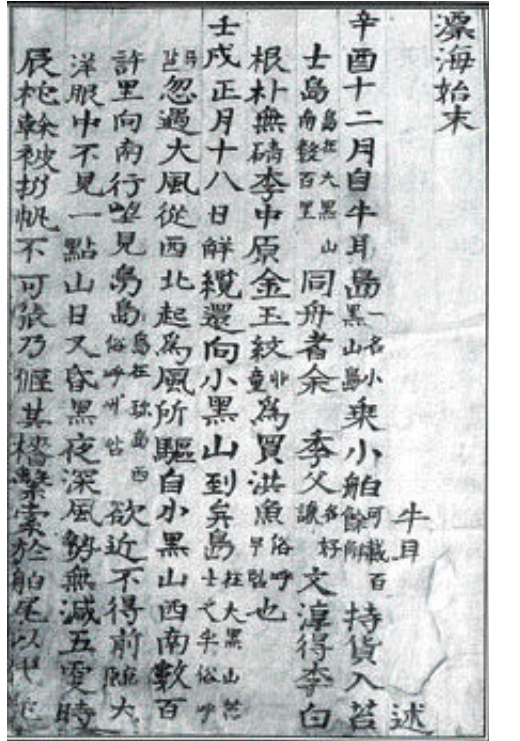 漂海始末
牛耳 述
辛酉十二月自牛耳島一名小黑山島乘小舶可載百餘斛持貨入苔
士島島在大黑山南數百里同舟者余 季父名好謙文淳得李白
根朴無碃李中原金玉紋丱童爲買洪魚俗呼也
壬戌正月十八日解纜還向小黑山到弁島在大黑山苔士之半俗呼
忽遇大風從西北起爲風所驅自小黑山西南數百
許里向南行望見鳥島島在珍島西俗呼欲近不得前臨大
洋眼中不見一點山日又昏黑夜深風勢無減五更時
辰柁榦被折帆不可張乃偃其檣繫索於舶尾以代